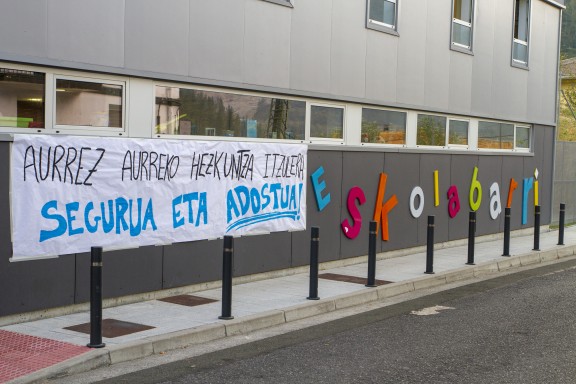 AURREZ AURREKO HEZKUNTZA ITZULERA
SEGURUA ETA ADOSTUA!
Eskolabarri